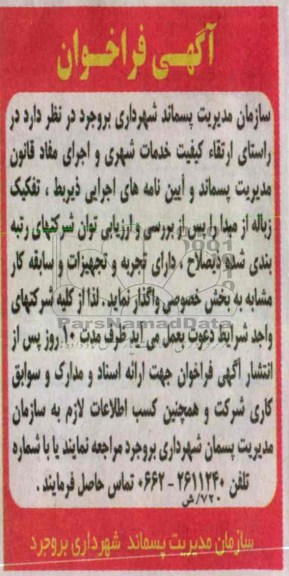 آگهی فراخوان
سازمان مدیریت پسماند شهرداری بروجرد در نظر دارد در
راستای ارتقاء کیفیت خدمات شهری و اجرای مفاد قانون
مدیریت پسماند و آیین نامه های اجرایی ذیربط ، تفکیک
زباله از مبدا را پس از بررسی و ارزیابی توان شرکتهای رتبه
بندی شده ذیصلاح ، دارای تجربه و تجهیزات و سابقه کار
مشابه به بخش خصوصی واگذار نماید . لذا از کلیه شرکتهای
واجد شرایط دعوت بعمل می آید ظرف مدت ۱۰ روز پس از
انتشار آگهی فراخوان جهت ارائه اسناد و مدارک و سوابق
کاری شرکت و همچنین کسب اطلاعات لازم به سازمان
مدیریت پسمان شهرداری بروجرد مراجعه نمایند یا با شماره
تلفن ۲۶۱۱۲۴۰ - ۰۶۶۲ تماس حاصل فرمایند .
۷۲۰/ش
سازمان مدیریت پسماند شهرداری بروجرد
ParsNamadData